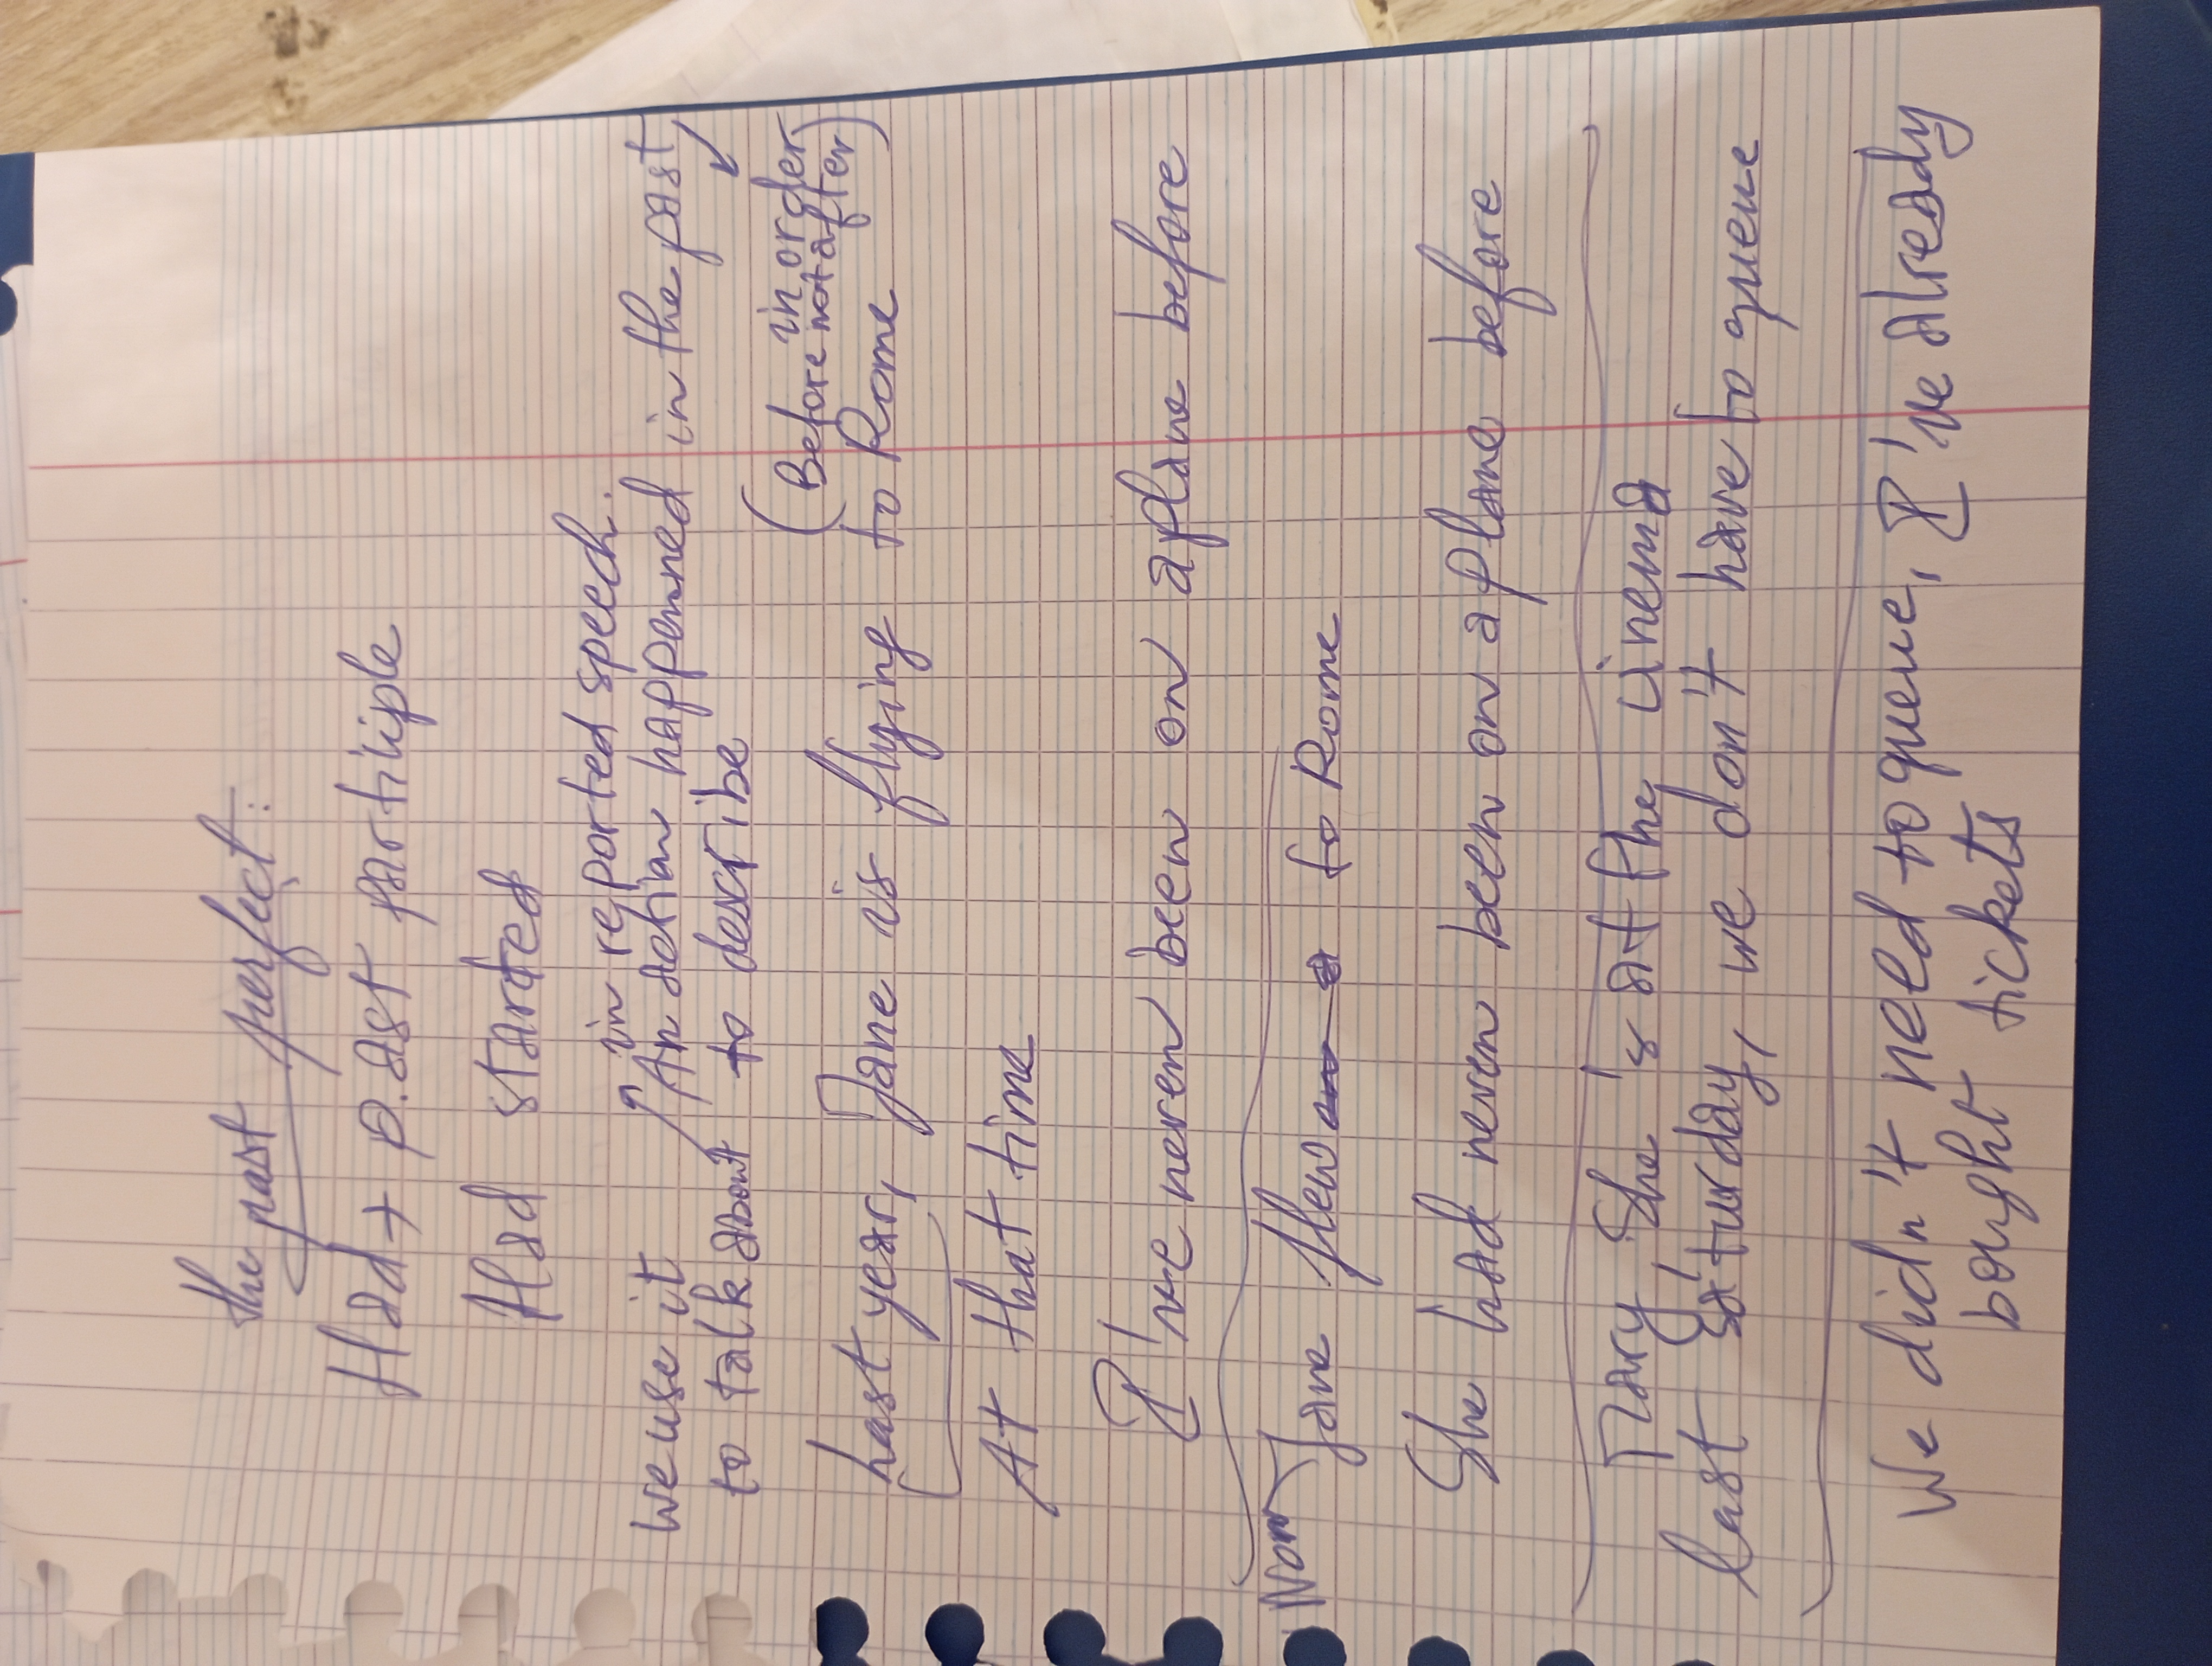 The past perfect:
Had + p.ast partiiple
Had started
in reported speech.
We use it An action happened in the past
to talk about to describe
(Before in order
Before not after)
Last year, Jane is flying to Rome
At that time
I've never been on a plane before
Now Jane flew to Rome
She had never been on a plane before
Mary, She's at the cinema
last saturday, we don't have to queue
We didn't need to queue, I've already
bought tickets